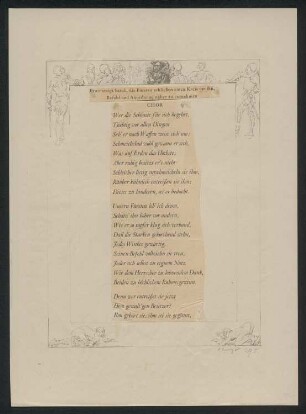 Faust steigt herab, die Fürsten schließen einen Kreis um ihn,
Befehl und Anordnung näher zu vernehmen
CHOR
Wer die Schönste für sich begehrt,
Tüchtig vor allen Dingen
Seh' er nach Waffen weise sich um;
Schmeichelnd wohl gewann er sich,
Was auf Erden das Höchste;
Aber ruhig besitzt er's nicht:
Schleicher listig entschmeicheln sie ihm,
Räuber kühnlich entreißen sie ihm;
Dieses zu hindern, sei er bedacht.
Unsern Fürsten lob' ich drum,
Schätz' ihn höher vor andern,
Wie er so tapfer klug sich verband,
Daß die Starken gehorchend stehn,
Jedes Winkes gewärtig.
Seinen Befehl vollziehn sie treu,
Jeder sich selbst zu eignem Nutz
Wie dem Herrscher zu lohnendem Dank,
Beiden zu höchlichem Ruhmesgewinn.
Denn wer entreißet sie jetzt
Dem gewalt'gen Besitzer?
Ihm gehört sie, ihm sei sie gegönnt,